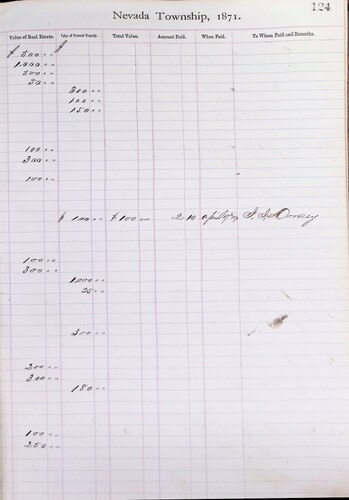 124
Nevada Township, 1871.
Value of Real Estate. Value of Personal Property. Total Value. Amount Paid. When Paid. To Whom Paid and Remarks.
$ 500 $
1,000
500
50
300
100
150
100
300
100
$ 100 $ 100 2 10
100
300
1,000
25
300
200
300
180
100
250